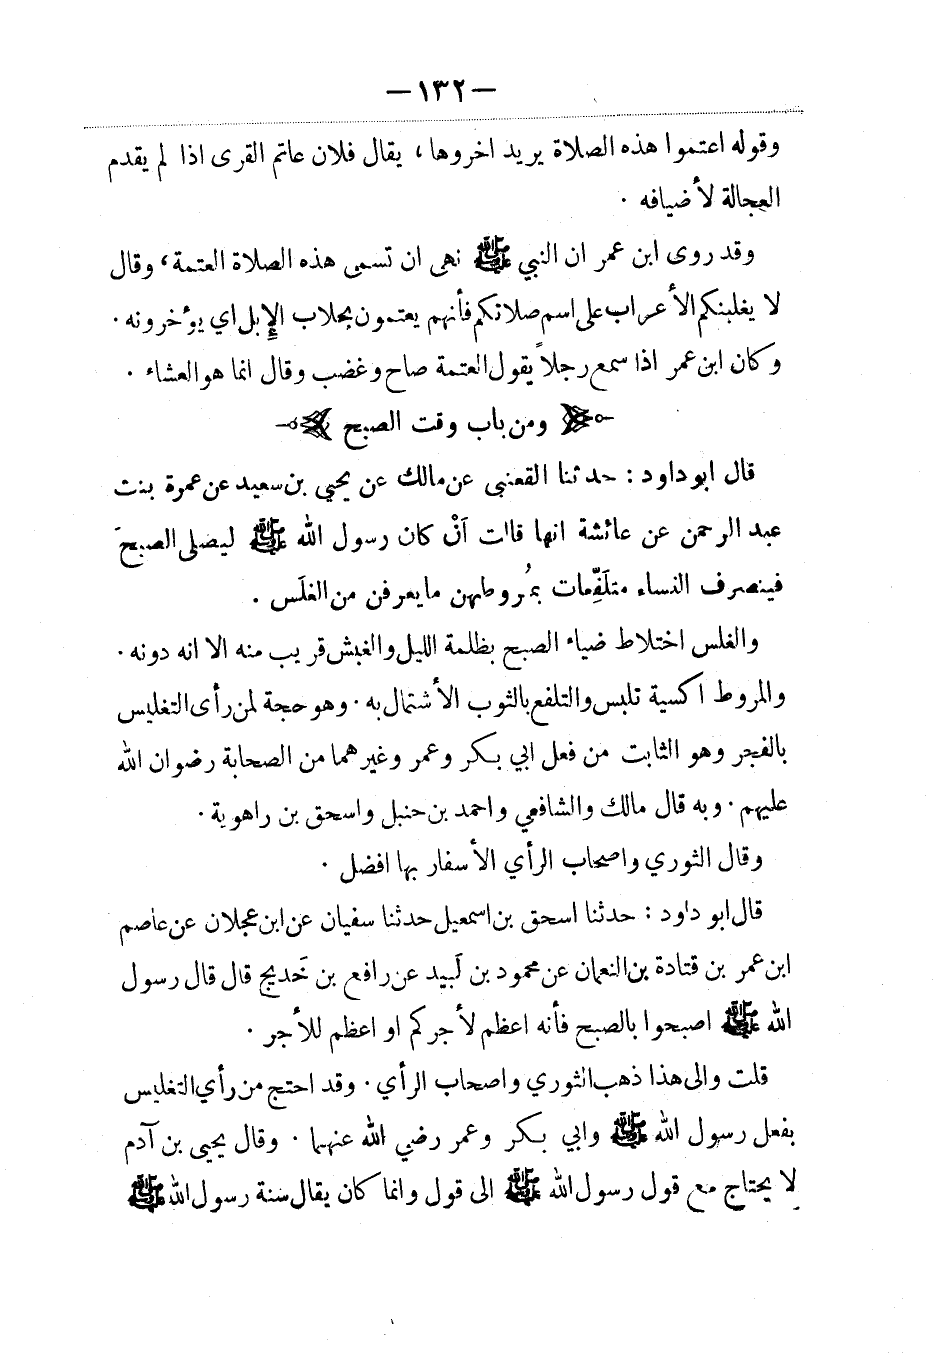 —١٣٢—
وقوله اعتموا هذه الصلاة يريد اخروها، يقال فلان عاتم القرى اذا لم يقدم
العجالة لأضيافه ٠
وقد روى ابن عمر ان النبي ﷺ نهى ان تسمى هذه الصلاة العتمة، وقال
لا يغلبنكم الأعراب على اسم صلاتكم فأنهم يعتمون بحلاب الإبل اي يؤخرونه ٠
وكان ابن عمر اذا سمع رجلاً يقول العتمة صاح وغضب وقال انما هو العشاء ٠
ومن باب وقت الصبح
قال ابو داود : حدثنا القعنبي عن مالك عن يحيي بن سعيد عن عمرة بنت
عبد الرحمن عن عائشة انها قالت اَنْ كان رسول الله ﷺ ليصلى الصبحَ
فينصرف النساء متلَفِّعات بمُروطهن ما يعرفن من الغلَس .
والغلس اختلاط ضياء الصبح بظلمة الليل والغبش قريب منه الا انه دونه ٠
والمروط اكسية تلبس والتلفع بالثوب الأشتمال به ٠ وهو حجة لمن رأى التغليس
بالفجر وهو الثابت من فعل ابي بكر وعمر وغيرهما من الصحابة رضوان الله
عليهم ٠ وبه قال مالك والشافعي واحمد بن حنبل واسحق بن راهوية ٠
وقال الثوري واصحاب الرأي الأسفار بها افضل ٠
قال ابو داود : حدثنا اسحق بن اسمعيل حدثنا سفيان عن ابن عجلان عن عاصم
ابن عمر بن قتادة بن النعمان عن محمود بن لَبيد عن رافع بن خَديج قال قال رسول
الله ﷺ اصبحوا بالصبح فأنه اعظم لأجركم او اعظم للأجر ٠
قلت والى هذا ذهب الثوري واصحاب الرأي ٠ وقد احتج من رأي التغليس
بفعل رسول الله ﷺ وابي بكر وعمر رضي الله عنهما ٠ وقال يحيى بن آدم
لا يحتاج مع قول رسول الله ﷺ الى قول وانما كان يقال سنة رسول الله ﷺ